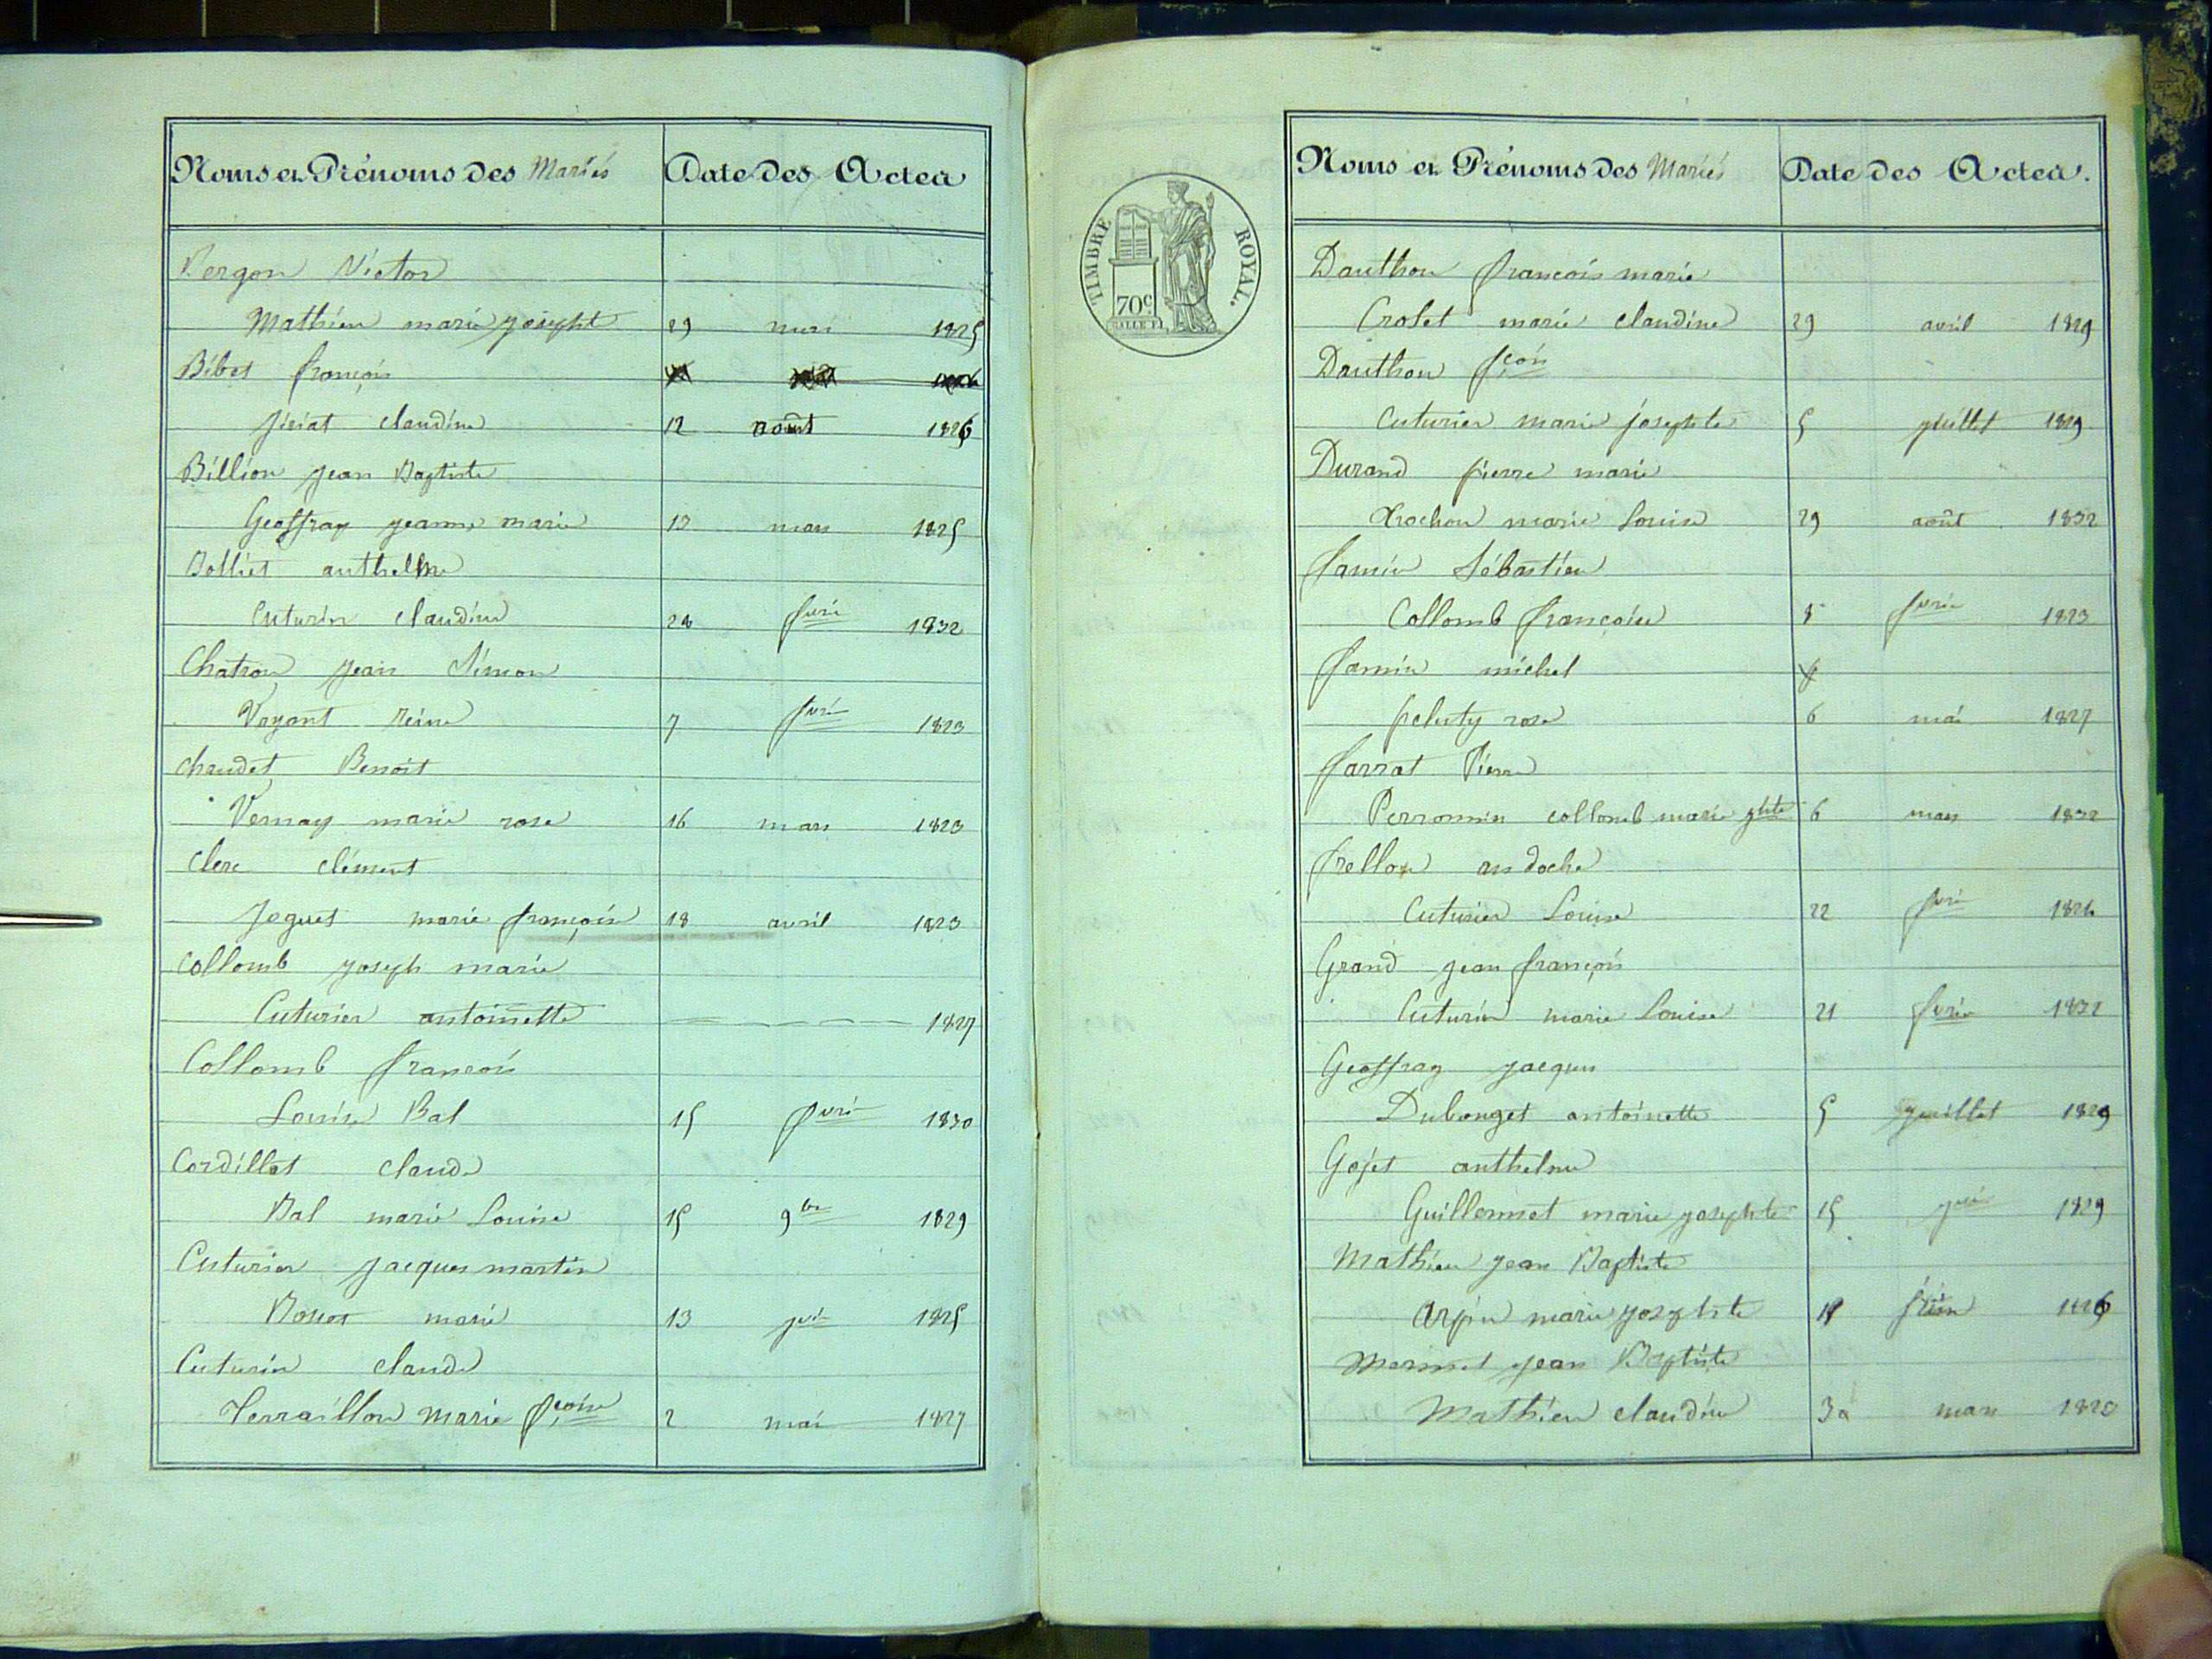 Noms et Prénoms des Mariés Date des Actes
Bergon Victor
Mathieu marie josepht 29 1825
Bibet françois
jiriat claudine 12 août 1826
Billion jean Baptiste
Geoffray jeanne marie 12 mars 1825
Bolliet anthelme
Cuturier claudine 28 fvrier 1832
Chatron jean Simon
Voyant reine 7 fvri 1823
chaudet Benoit
Vernay marie rose 16 mars 1823
clerc clément
Joguet marie françois 18 avril 1823
collomb joseph marie
Cuturier antoinette 1827
Collomb françois
Louise Bal 15 fvri 1830
Cordillot claude
Bal marie Louise 15 9bre 1829
Cuturier jacques martin
marie 13 1825
Cuturier claude
Terraillon marie fçoise 2 mai 1827
TIMBRE ROYAL.
70c
Noms et Prénoms des Mariés Date des Actes.
Dauthon françois marie
Crolet marie claudine 29 avril 1829
Dauthon fçois
Cuturier marie josephte 5 juillet 1829
Durand pierre marie
Trochon marie Louise 29 août 1832
famin Sébastien
Collomb françoise 8 fvrie 1823
famin michel
peluty rose 6 mai 1827
farrat Pierre
Perronnin collomb marie jphte 6 mars 1832
frellon andoche
Cuturier Louise 22 fvri 1824
Grand jean françois
Cuturier marie Louise 21 fvrier 1832
Geoffray jacques
Dubouget antoinette 5 juillet 1829
Gojet anthelme
Guillermet marie josephte 15 1829
Mathieu jean Baptiste
Arpin marie josephte 1826
Mermet jean Baptiste
Mathieu claudine 30 mars 1820